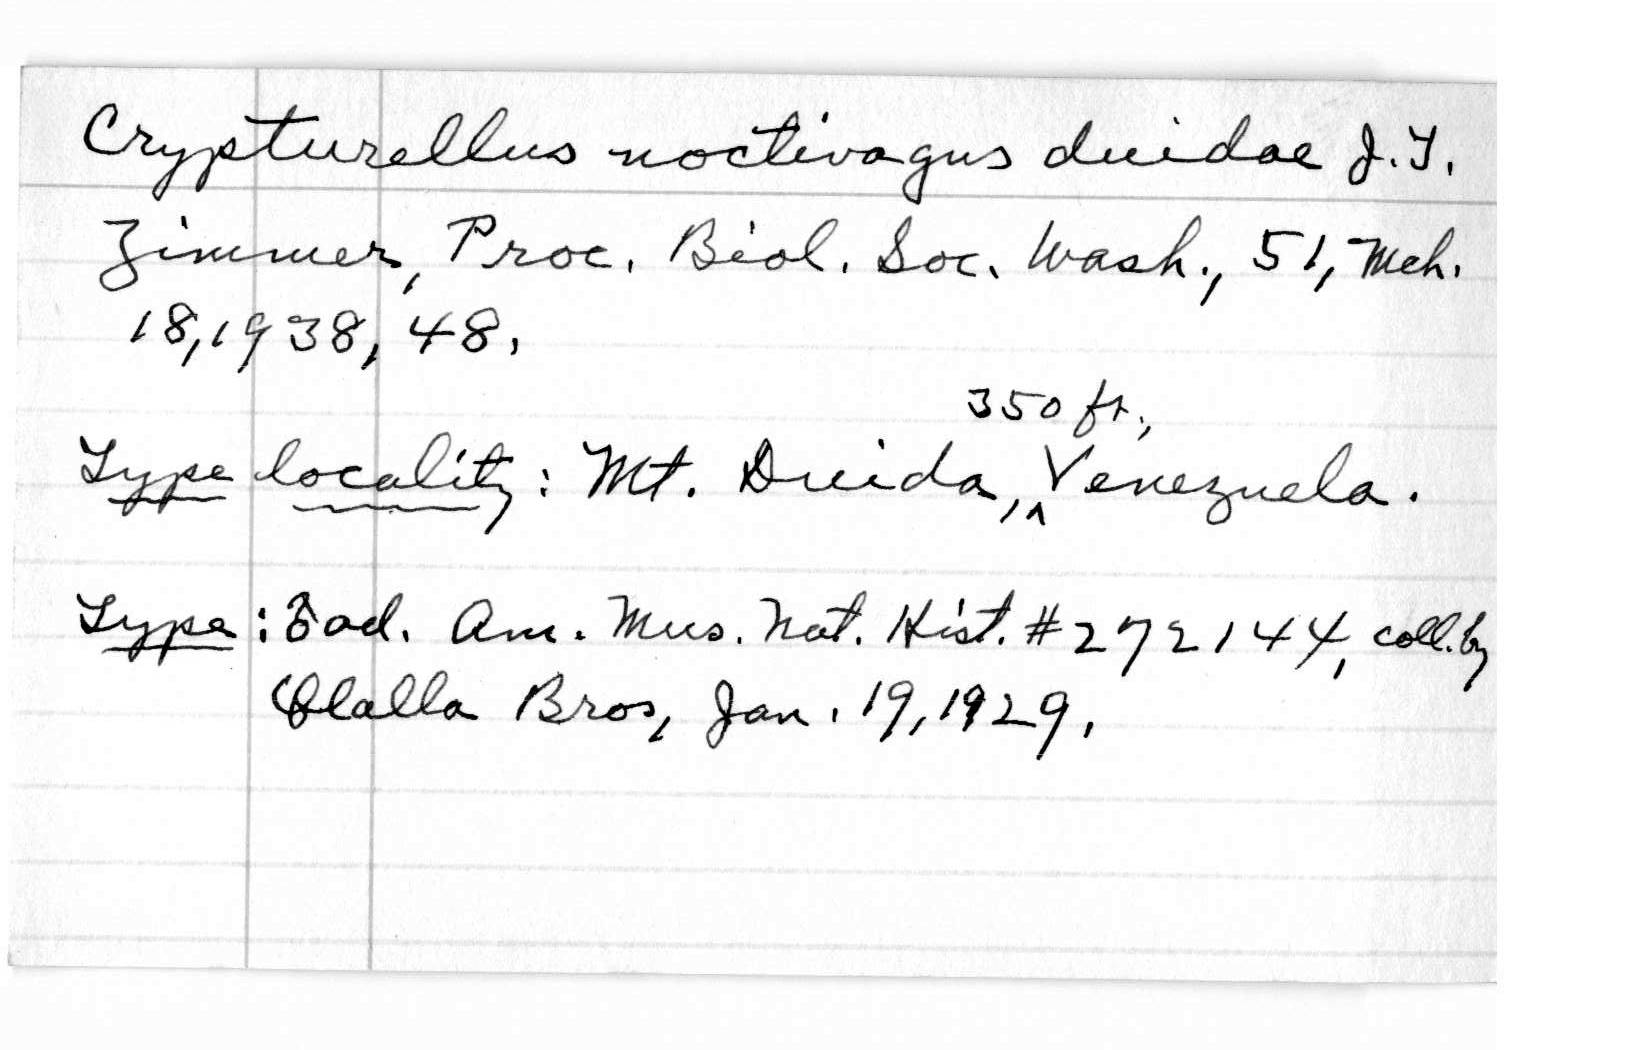 Crypturellus noctivagus duidae J. T.
Zimmer, Proc. Biol. Soc. Wash., 51, Mch.
18, 1938, 48.
350 ft.,
Type locality: Mt. Duida, ^ Venezuela.
Type: ♂ ad. Am. Mus. Nat. Hist. #272144, coll. by
Olalla Bros, Jan. 19, 1929.